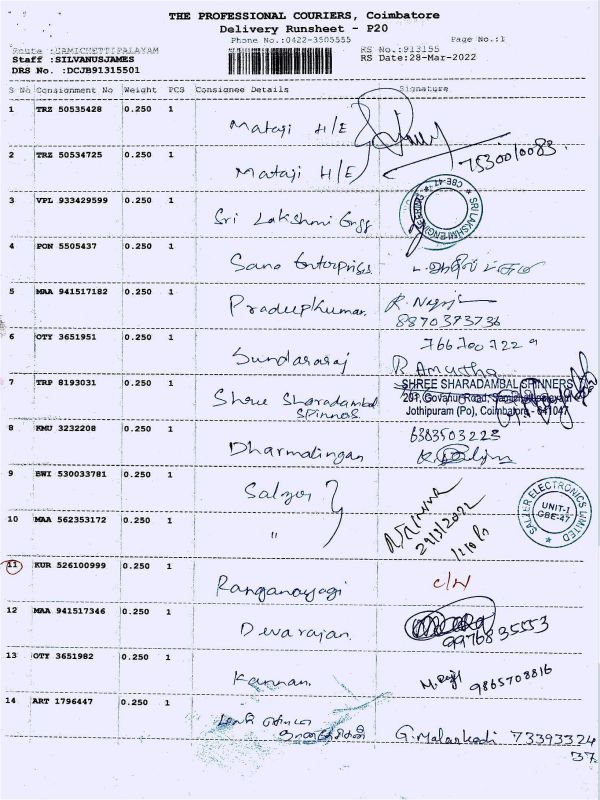 THE PROFESSIONAL COURIERS, Coimbatore
Delivery Runsheet - P20
Phone No.:0422-3505555 Page No.:1
Route :SAMICHETTIPALAYAM RS No.:913155
Staff :SILVANUSJAMES RS Date:28-Mar-2022
DRS No. :DCJB91315501
S No Consignment No Weight PCS Consignee Details Signature
1 TRZ 50535428 0.250 1 Mataji H/E
2 TRZ 50534725 0.250 1 Mataji H/E 7530010083.
3 VPL 933429599 0.250 1 Sri Lakshmi Engg
4 PON 5505437 0.250 1 Sano Enterprises
5 MAA 941517182 0.250 1 Pradeepkumar.
8870373736
6 OTY 3651951 0.250 1 Sundararaj 7667007229
R. Amurtha
7 TRP 8193031 0.250 1 Shree Sharadambal Spinnos. SHREE SHARADAMBAL SPINNERS
201, Govanur Road,
Jothipuram (Po), Coimbatore - 641047
8 KMU 3232208 0.250 1 Dharmalingan 6383503223
9 BWI 530033781 0.250 1 Salzer
SALZER ELECTRONICS LIMITED
UNIT-I
CBE-47
10 MAA 562353172 0.250 1 " 29/3/2022
11 KUR 526100999 0.250 1 Ranganayagi C/N
12 MAA 941517346 0.250 1 Devarajan. 9976835553
13 OTY 3651982 0.250 1 Kannan. 9865708816
14 ART 1796447 0.250 1 G. Malarkodi 73393324
37.